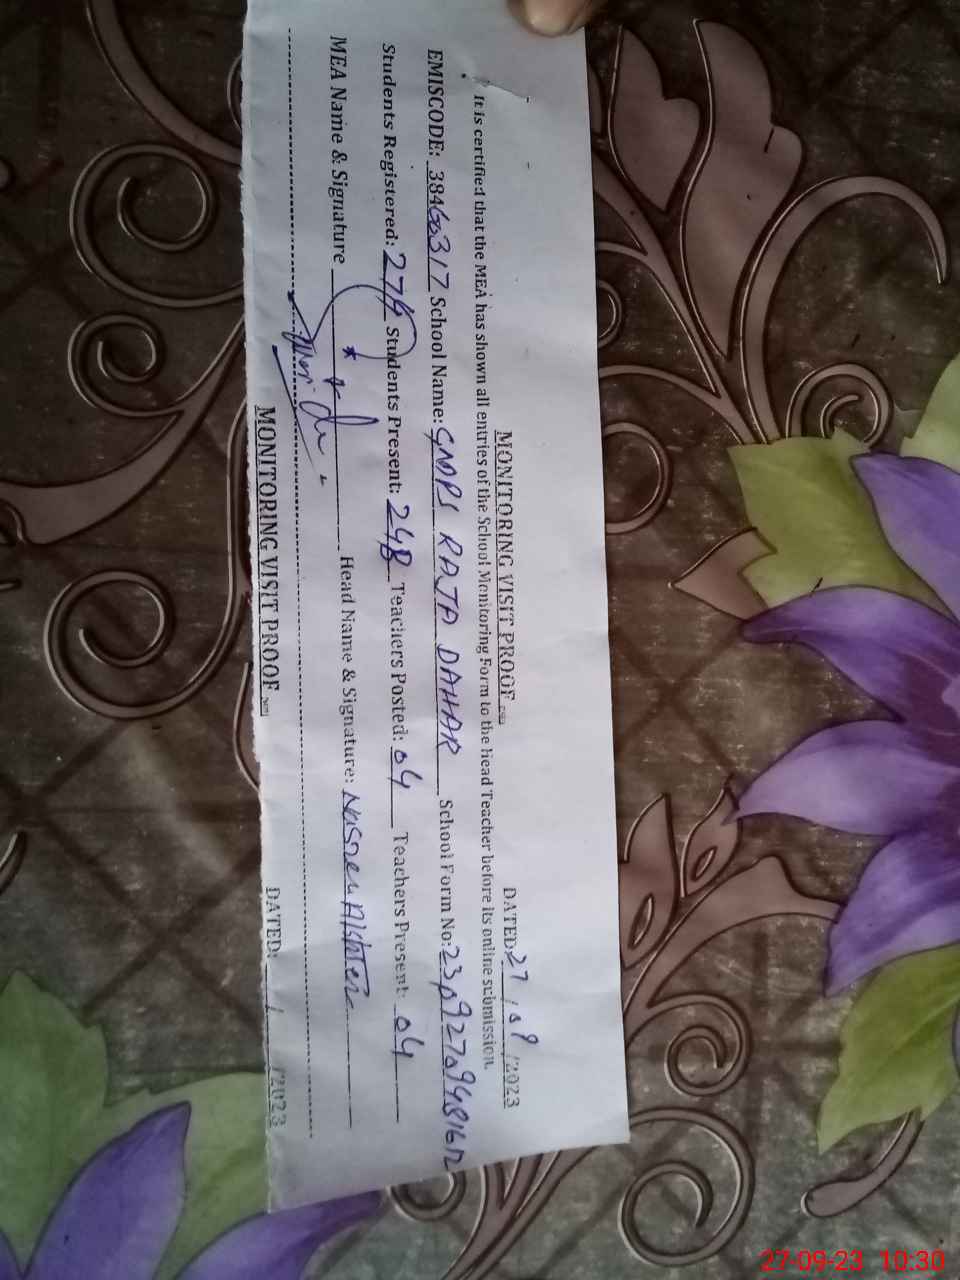 MONITORING VISIT PROOF DATED 27/09/2023
It is certified that the MEA has shown all entries of the School Monitoring Form to the Head Teacher before its online submission.
EMISCODE: 38460317 School Name: GMPS RAJA DAHAR School Form No: 23092709481612
Students Registered: 279 Students Present: 248 Teachers Posted: 04 Teachers Present: 04
MEA Name & Signature Head Name & Signature: Nasreen Akhter
MONITORING VISIT PROOF DATED: / /2023
27-09-23 10:30